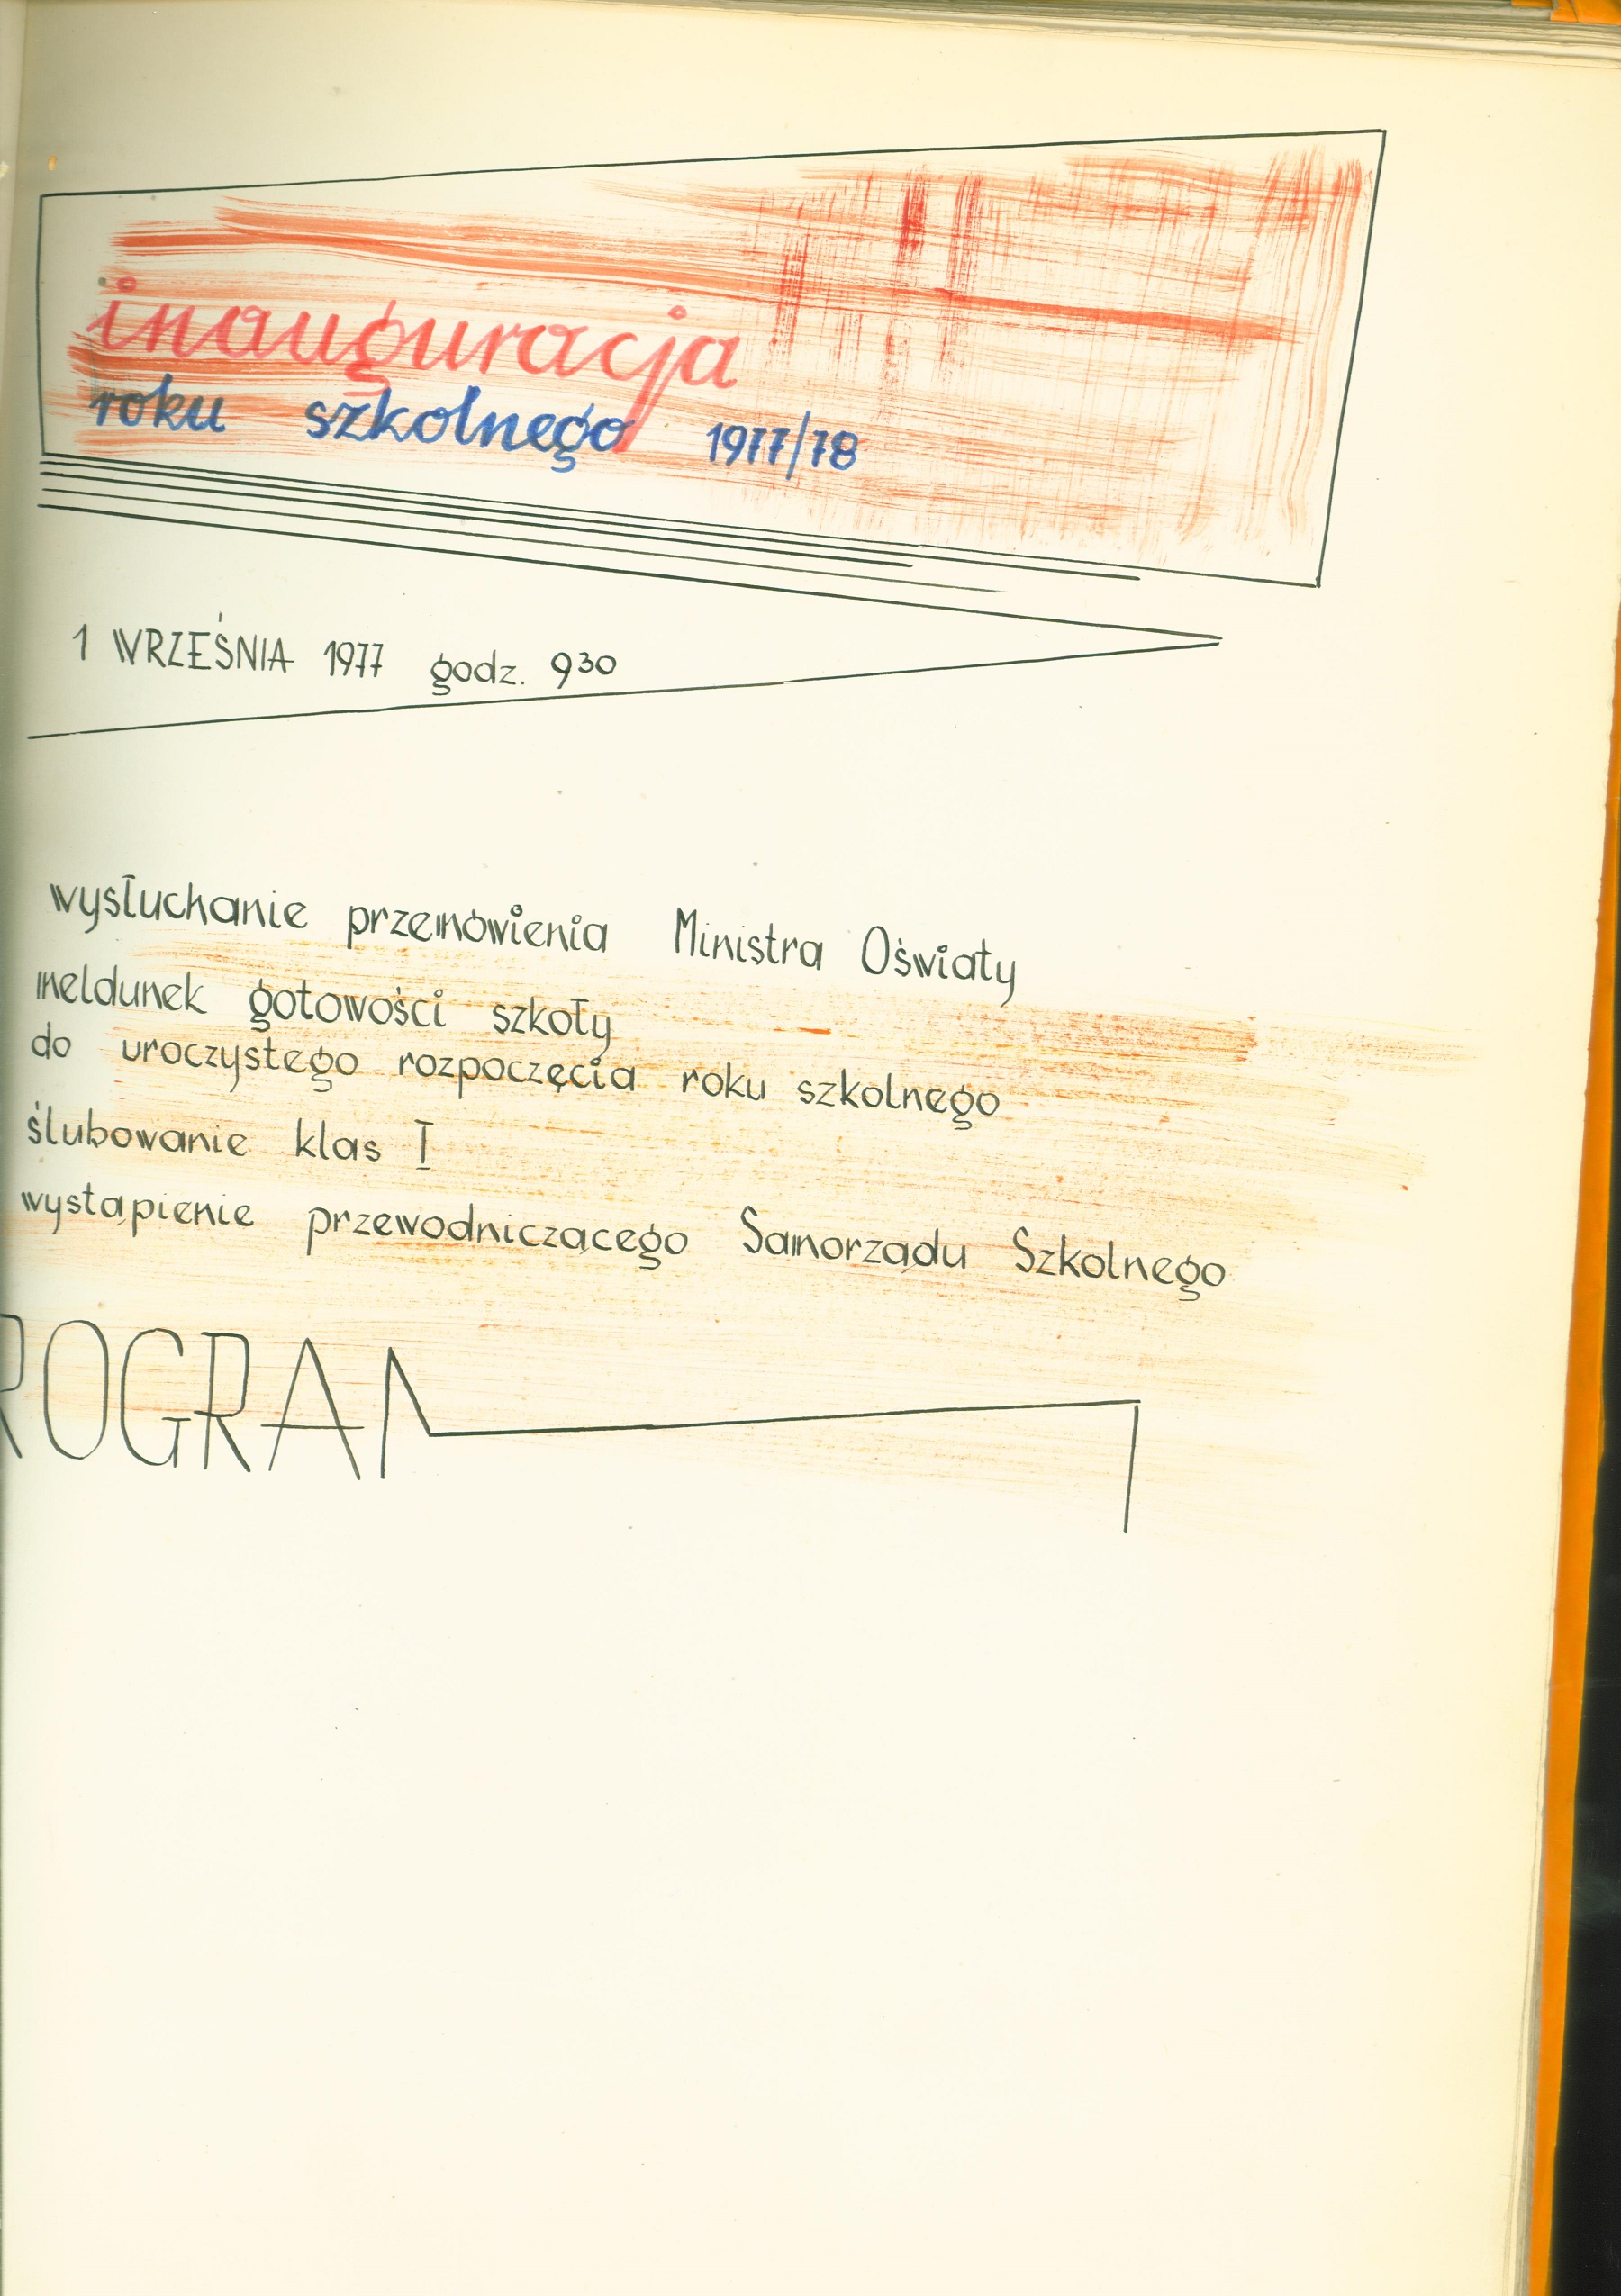 inauguracja
roku szkolnego 1977/78
1 WRZEŚNIA 1977 godz. 9³⁰
wysłuchanie przemówienia Ministra Oświaty
meldunek gotowości szkoły
do uroczystego rozpoczęcia roku szkolnego
ślubowanie klas I
wystąpienie przewodniczącego Samorządu Szkolnego
ROGRAM